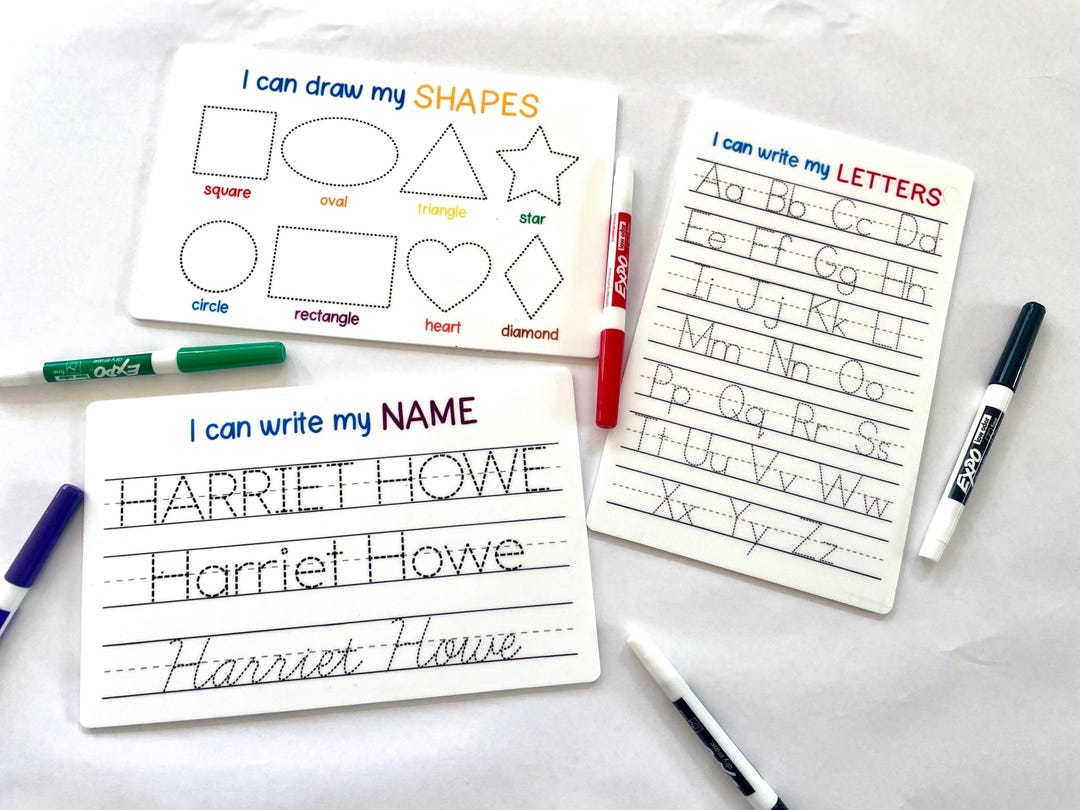 I can draw my SHAPES
square oval triangle star
circle rectangle heart diamond
I can write my LETTERS
Aa Bb Cc Dd
Ee Ff Gg Hh
Ii Jj Kk Ll
Mm Nn Oo
Pp Qq Rr Ss
Tt Uu Vv Ww
Xx Yy Zz
I can write my NAME
HARRIET HOWE
Harriet Howe
Harriet Howe
EXPO dry erase fine
EXPO low odor
EXPO low odor
dry erase